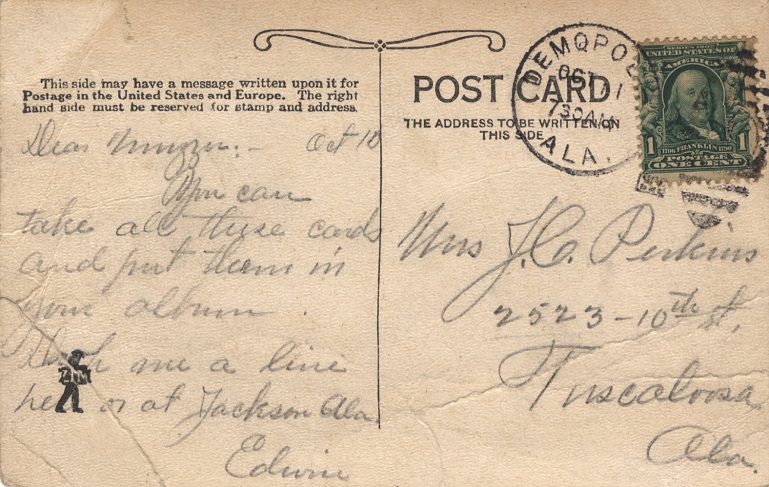 This side may have a message written upon it for
Postage in the United States and Europe. The right
hand side must be reserved for stamp and address.
Dear Muzzer:- Oct 10
You can
take all these cards
and put them in
your album.
me a line
or at Jackson Ala.
Edwin
ZIM
POST CARD
THE ADDRESS TO BE WRITTEN ON
THIS SIDE
DEMOPOL
OCT 1
730AM
ALA.
SERIES 1902
UNITED STATES OF
AMERICA
1706 FRANKLIN 1790
1 1
POSTAGE
ONE CENT
Mrs J.C. Perkins
2523-10th st.
Tuscaloosa
Ala.